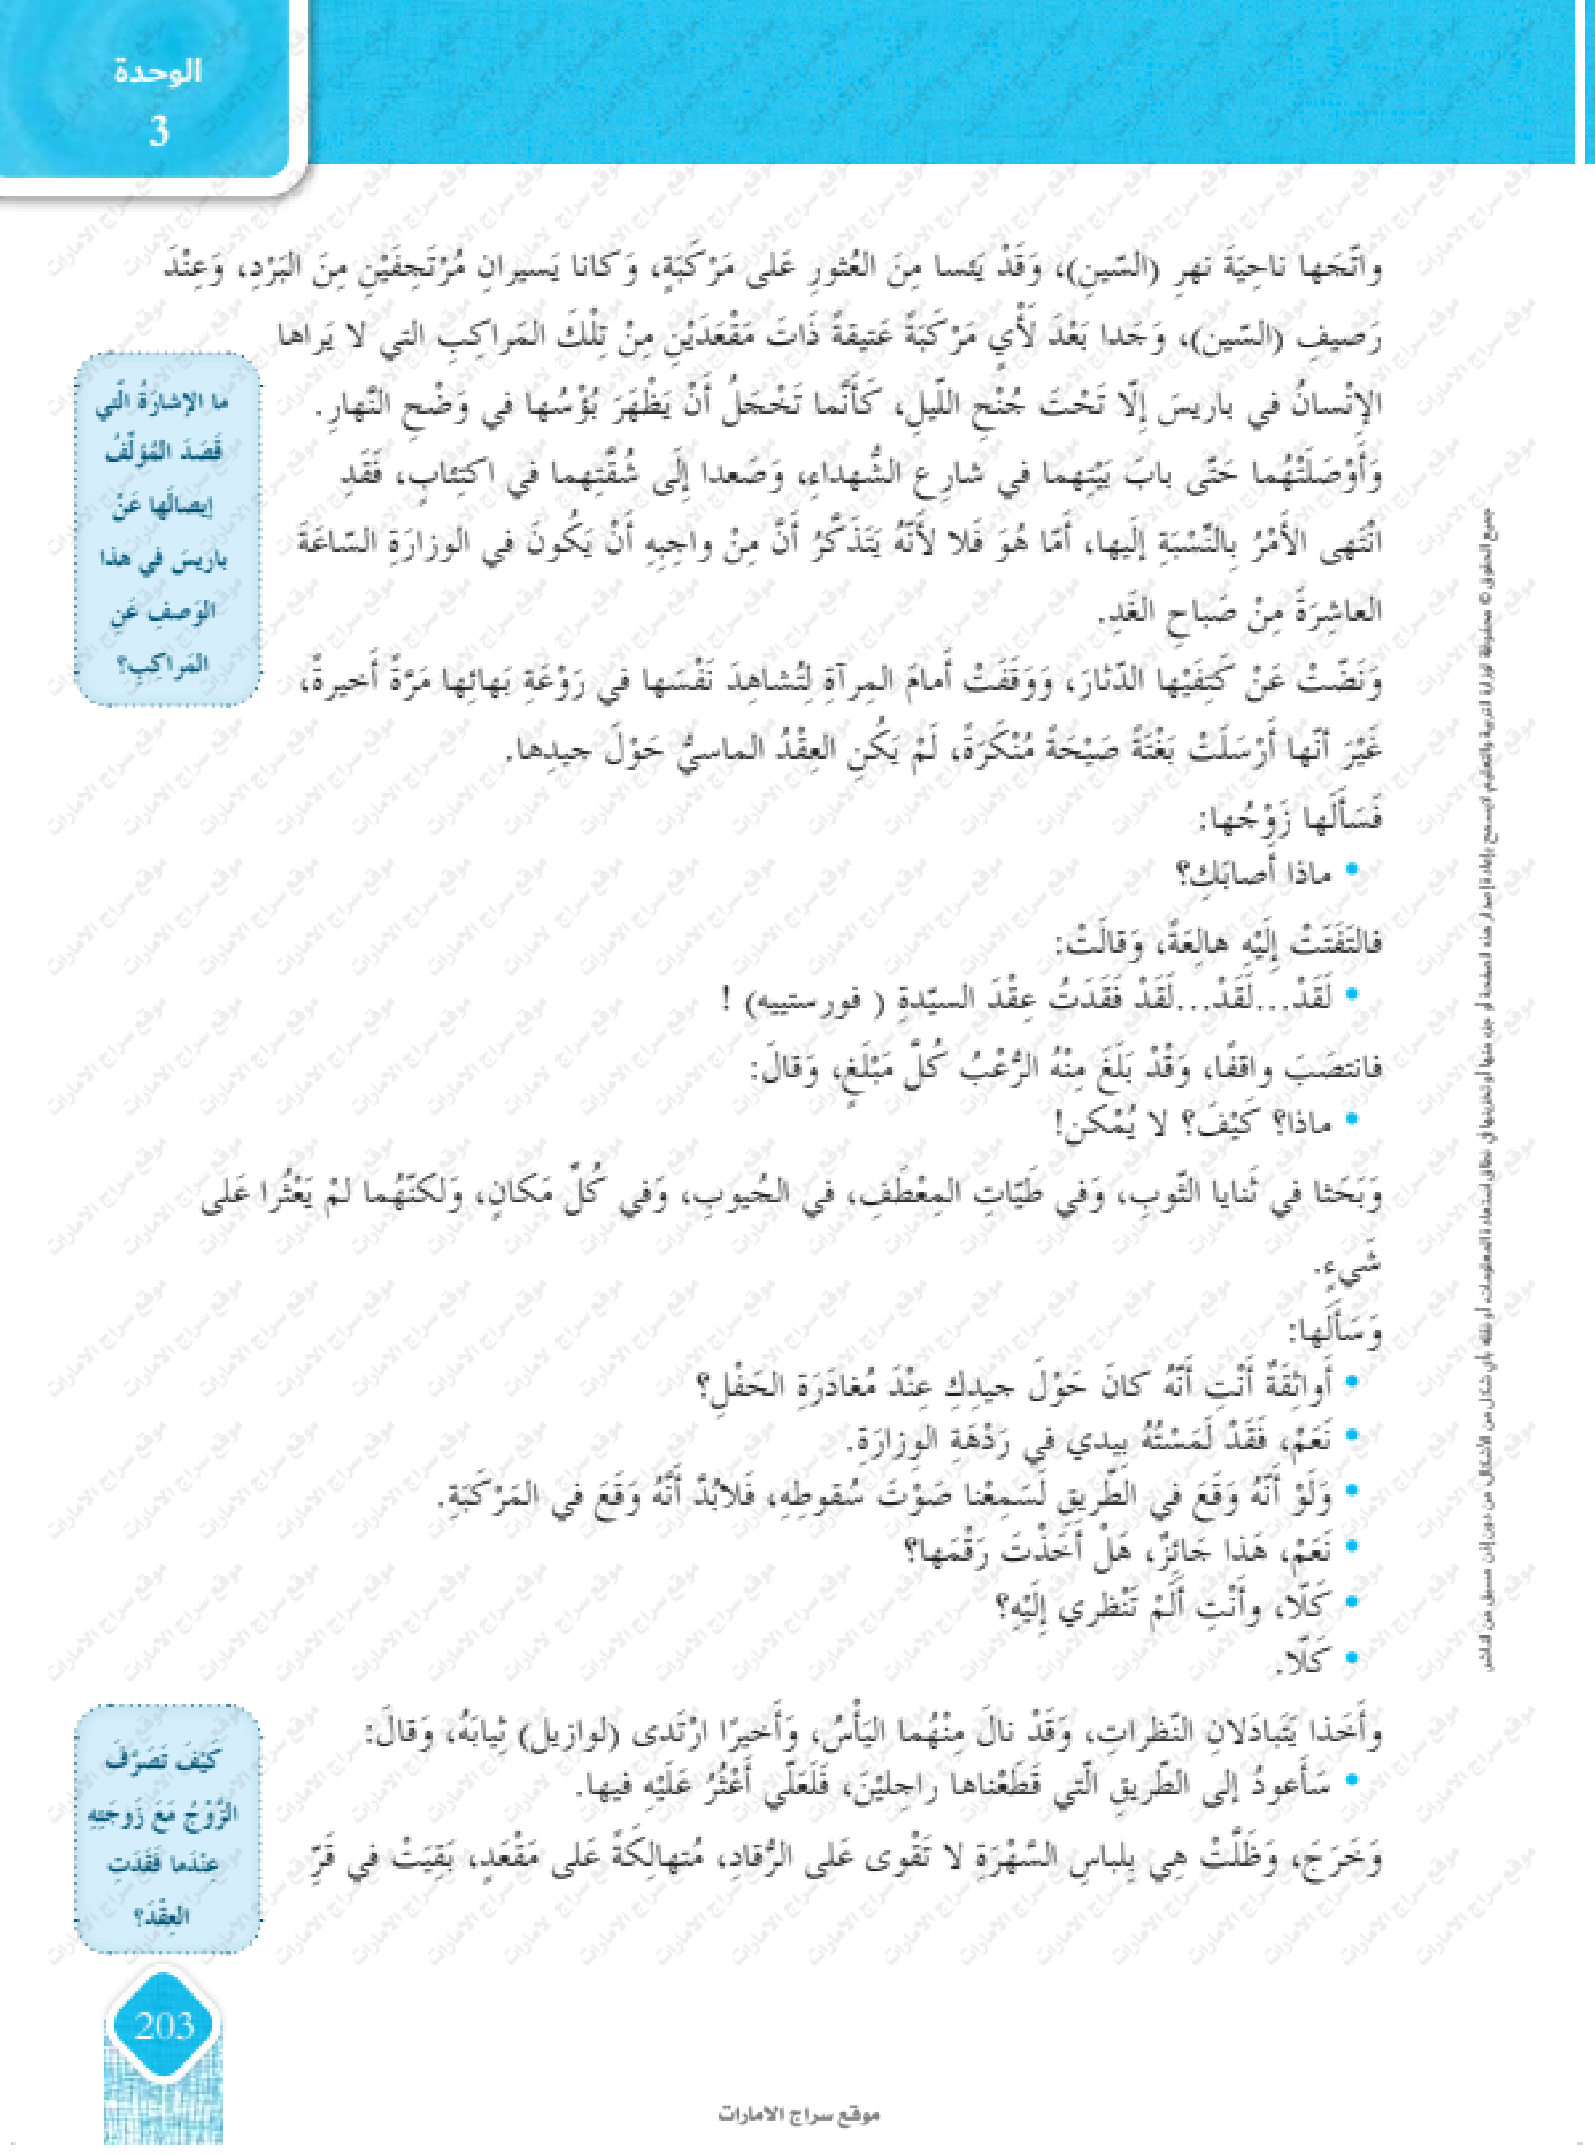 الوحدة
3
واتّجَها ناحِيَةَ نهرِ (السّينِ)، وَقَدْ يَئسا مِنَ العُثورِ عَلى مَرْكَبَةٍ، وَكانا يَسيرانِ مُرْتَجِفَيْنِ مِنَ البَرْدِ، وَعِنْدَ
رَصيفِ (السّين)، وَجَدا بَعْدَ لَأْيٍ مَرْكَبَةً عَتيقةً ذَاتَ مَقْعَدَيْنِ مِنْ تِلْكَ المَراكِبِ التي لا يَراها
الإنْسانُ في باريسَ إلّا تَحْتَ جُنْحِ اللّيلِ، كَأَنَّما تَخْجَلُ أَنْ يَظْهَرَ بُؤْسُها في وَضْحِ النَّهارِ.
وَأَوْصَلَتْهُما حَتّى بابَ بَيْتِهما في شارِعِ الشُّهداءِ، وَصَعدا إلَى شُقَّتِهما في اكتِئابٍ، فَقَدِ
انْتَهى الأَمْرُ بِالنِّسْبَةِ إلَيها، أَمّا هُوَ فَلا لأَنَّهُ يَتَذَكَّرُ أَنَّ مِنْ واجِبِهِ أَنْ يَكُونَ في الوزارَةِ السّاعَةَ
العاشِرَةَ مِنْ صَباحِ الغَدِ.
وَنَضّتْ عَنْ كَتِفَيْها الدّثارَ، وَوَقَفَتْ أَمامَ المِرآةِ لِتُشاهِدَ نَفْسَها في رَوْعَةِ بَهائِها مَرَّةً أَخيرةً،
غَيْرَ أنّها أَرْسَلَتْ بَغْتَةً صَيْحَةً مُنْكَرَةً، لَمْ يَكُنِ العِقْدُ الماسيُّ حَوْلَ جيدِها.
فَسَأَلَها زَوْجُها:
• ماذا أَصابَكِ؟
فالتَفَتَتْ إلَيْهِ هالِعَةً، وَقالَتْ:
• لَقَدْ...لَقَدْ...لَقَدْ فَقَدَتُ عِقْدَ السيّدةِ ( فورستييه) !
فانتصَبَ واقفًا، وَقْدْ بَلَغَ مِنْهُ الرُّعْبُ كُلَّ مَبْلَغٍ، وَقالَ:
• ماذا؟ كَيْفَ؟ لا يُمْكن!
وَبَحَثا في ثَنايا الثّوبِ، وَفي طَيّاتِ المِعْطَفِ، في الجُيوبِ، وَفي كُلِّ مَكانٍ، وَلكنّهُما لمْ يَعْثُرا عَلى
شَيءٍ.
وَسَأَلَها:
• أَواثِقَةٌ أَنْتِ أَنّهُ كانَ حَوْلَ جيدِكِ عِنْدَ مُغادَرَةِ الحَفْلِ؟
• نَعَمْ، فَقَدْ لَمَسْتُهُ بِيدي في رَدْهَةِ الوِزارَةِ.
• وَلَوْ أَنَّهُ وَقَعَ في الطّريقِ لَسَمِعْنا صَوْتَ سُقوطِهِ، فَلابُدَّ أَنَّهُ وَقَعَ في المَرْكَبَةِ.
• نَعَمْ، هَذا جَائِزٌ، هَلْ أَخَذْتَ رَقْمَها؟
• كَلّا، وأَنْتِ أَلَمْ تَنْظري إلَيْهِ؟
• كَلّا.
وأَخَذا يَتَبادَلانِ النّظراتِ، وَقَدْ نالَ مِنْهُما اليَأْسُ، وَأَخيرًا ارْتَدى (لوازيل) ثِيابَهُ، وَقالَ:
• سَأَعودُ إلى الطّريقِ الّتي قَطَعْناها راجِليْنَ، فَلَعَلّي أَعْثُرُ عَلَيْهِ فيها.
وَخَرَجَ، وَظَلَّتْ هِي بِلباسِ السَّهْرَةِ لا تَقْوى عَلى الرُّقادِ، مُتهالِكَةً عَلى مَقْعَدٍ، بَقِيَتْ في قَرِّ
ما الإشارَةُ الّتي
قَصَدَ المُؤلّفُ
إيصالَها عَنْ
باريسَ في هذا
الوَصفِ عَنِ
المَراكِبِ؟
كَيْفَ تَصَرَّفَ
الزَّوْجُ مَعَ زَوجَتِهِ
عِنْدَما فَقَدَتِ
العِقْدَ؟
203
موقع سراج الامارات